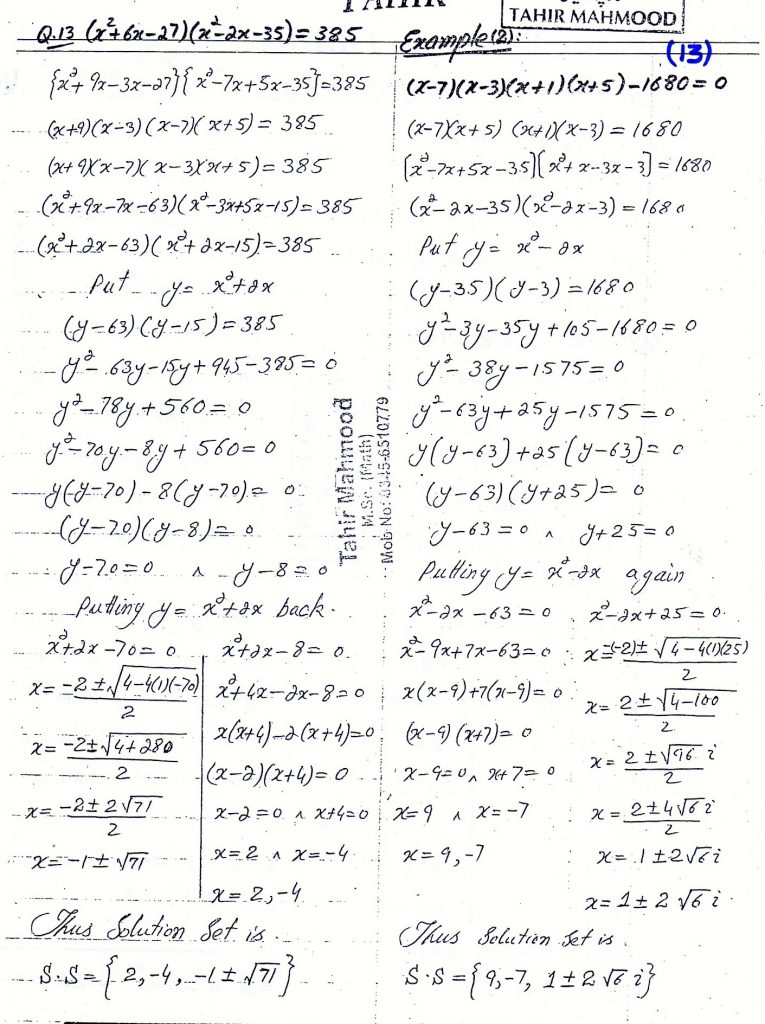 TAHIR
TAHIR MAHMOOD
(13)
Q.13 (x²+6x-27)(x²-2x-35)=385
{x²+9x-3x-27}{x²-7x+5x-35}=385
(x+9)(x-3)(x-7)(x+5)=385
(x+9)(x-7)(x-3)(x+5)=385
(x²+9x-7x-63)(x²-3x+5x-15)=385
(x²+2x-63)(x²+2x-15)=385
Put y= x²+2x
(y-63)(y-15)=385
y²-63y-15y+945-385=0
y²-78y+560=0
y²-70y-8y+560=0
y(y-70)-8(y-70)=0
(y-70)(y-8)=0
y-70=0 ∧ y-8=0
Putting y= x²+2x back.
x²+2x-70=0
x=-2±√4-4(1)(-70)/2
x=-2±√4+280/2
x=-2±2√71/2
x=-1±√71
x²+2x-8=0
x²+4x-2x-8=0
x(x+4)-2(x+4)=0
(x-2)(x+4)=0
x-2=0 ∧ x+4=0
x=2 ∧ x=-4
x=2,-4
Thus Solution Set is
S.S={2,-4,-1±√71}
Tahir Mahmood
M.Sc. (Math)
Mob No: 0345-6510779
Example(2):
(x-7)(x-3)(x+1)(x+5)-1680=0
(x-7)(x+5)(x+1)(x-3)=1680
[x²-7x+5x-35][x²+x-3x-3]=1680
(x²-2x-35)(x²-2x-3)=1680
Put y= x²-2x
(y-35)(y-3)=1680
y²-3y-35y+105-1680=0
y²-38y-1575=0
y²-63y+25y-1575=0
y(y-63)+25(y-63)=0
(y-63)(y+25)=0
y-63=0 ∧ y+25=0
Putting y= x²-2x again
x²-2x-63=0
x²-9x+7x-63=0
x(x-9)+7(x-9)=0
(x-9)(x+7)=0
x-9=0 ∧ x+7=0
x=9 ∧ x=-7
x=9,-7
x²-2x+25=0
x=-(-2)±√4-4(1)(25)/2
x=2±√4-100/2
x=2±√96 i/2
x=2±4√6 i/2
x=1±2√6 i
x=1±2√6 i
Thus Solution Set is
S.S={9,-7, 1±2√6 i}